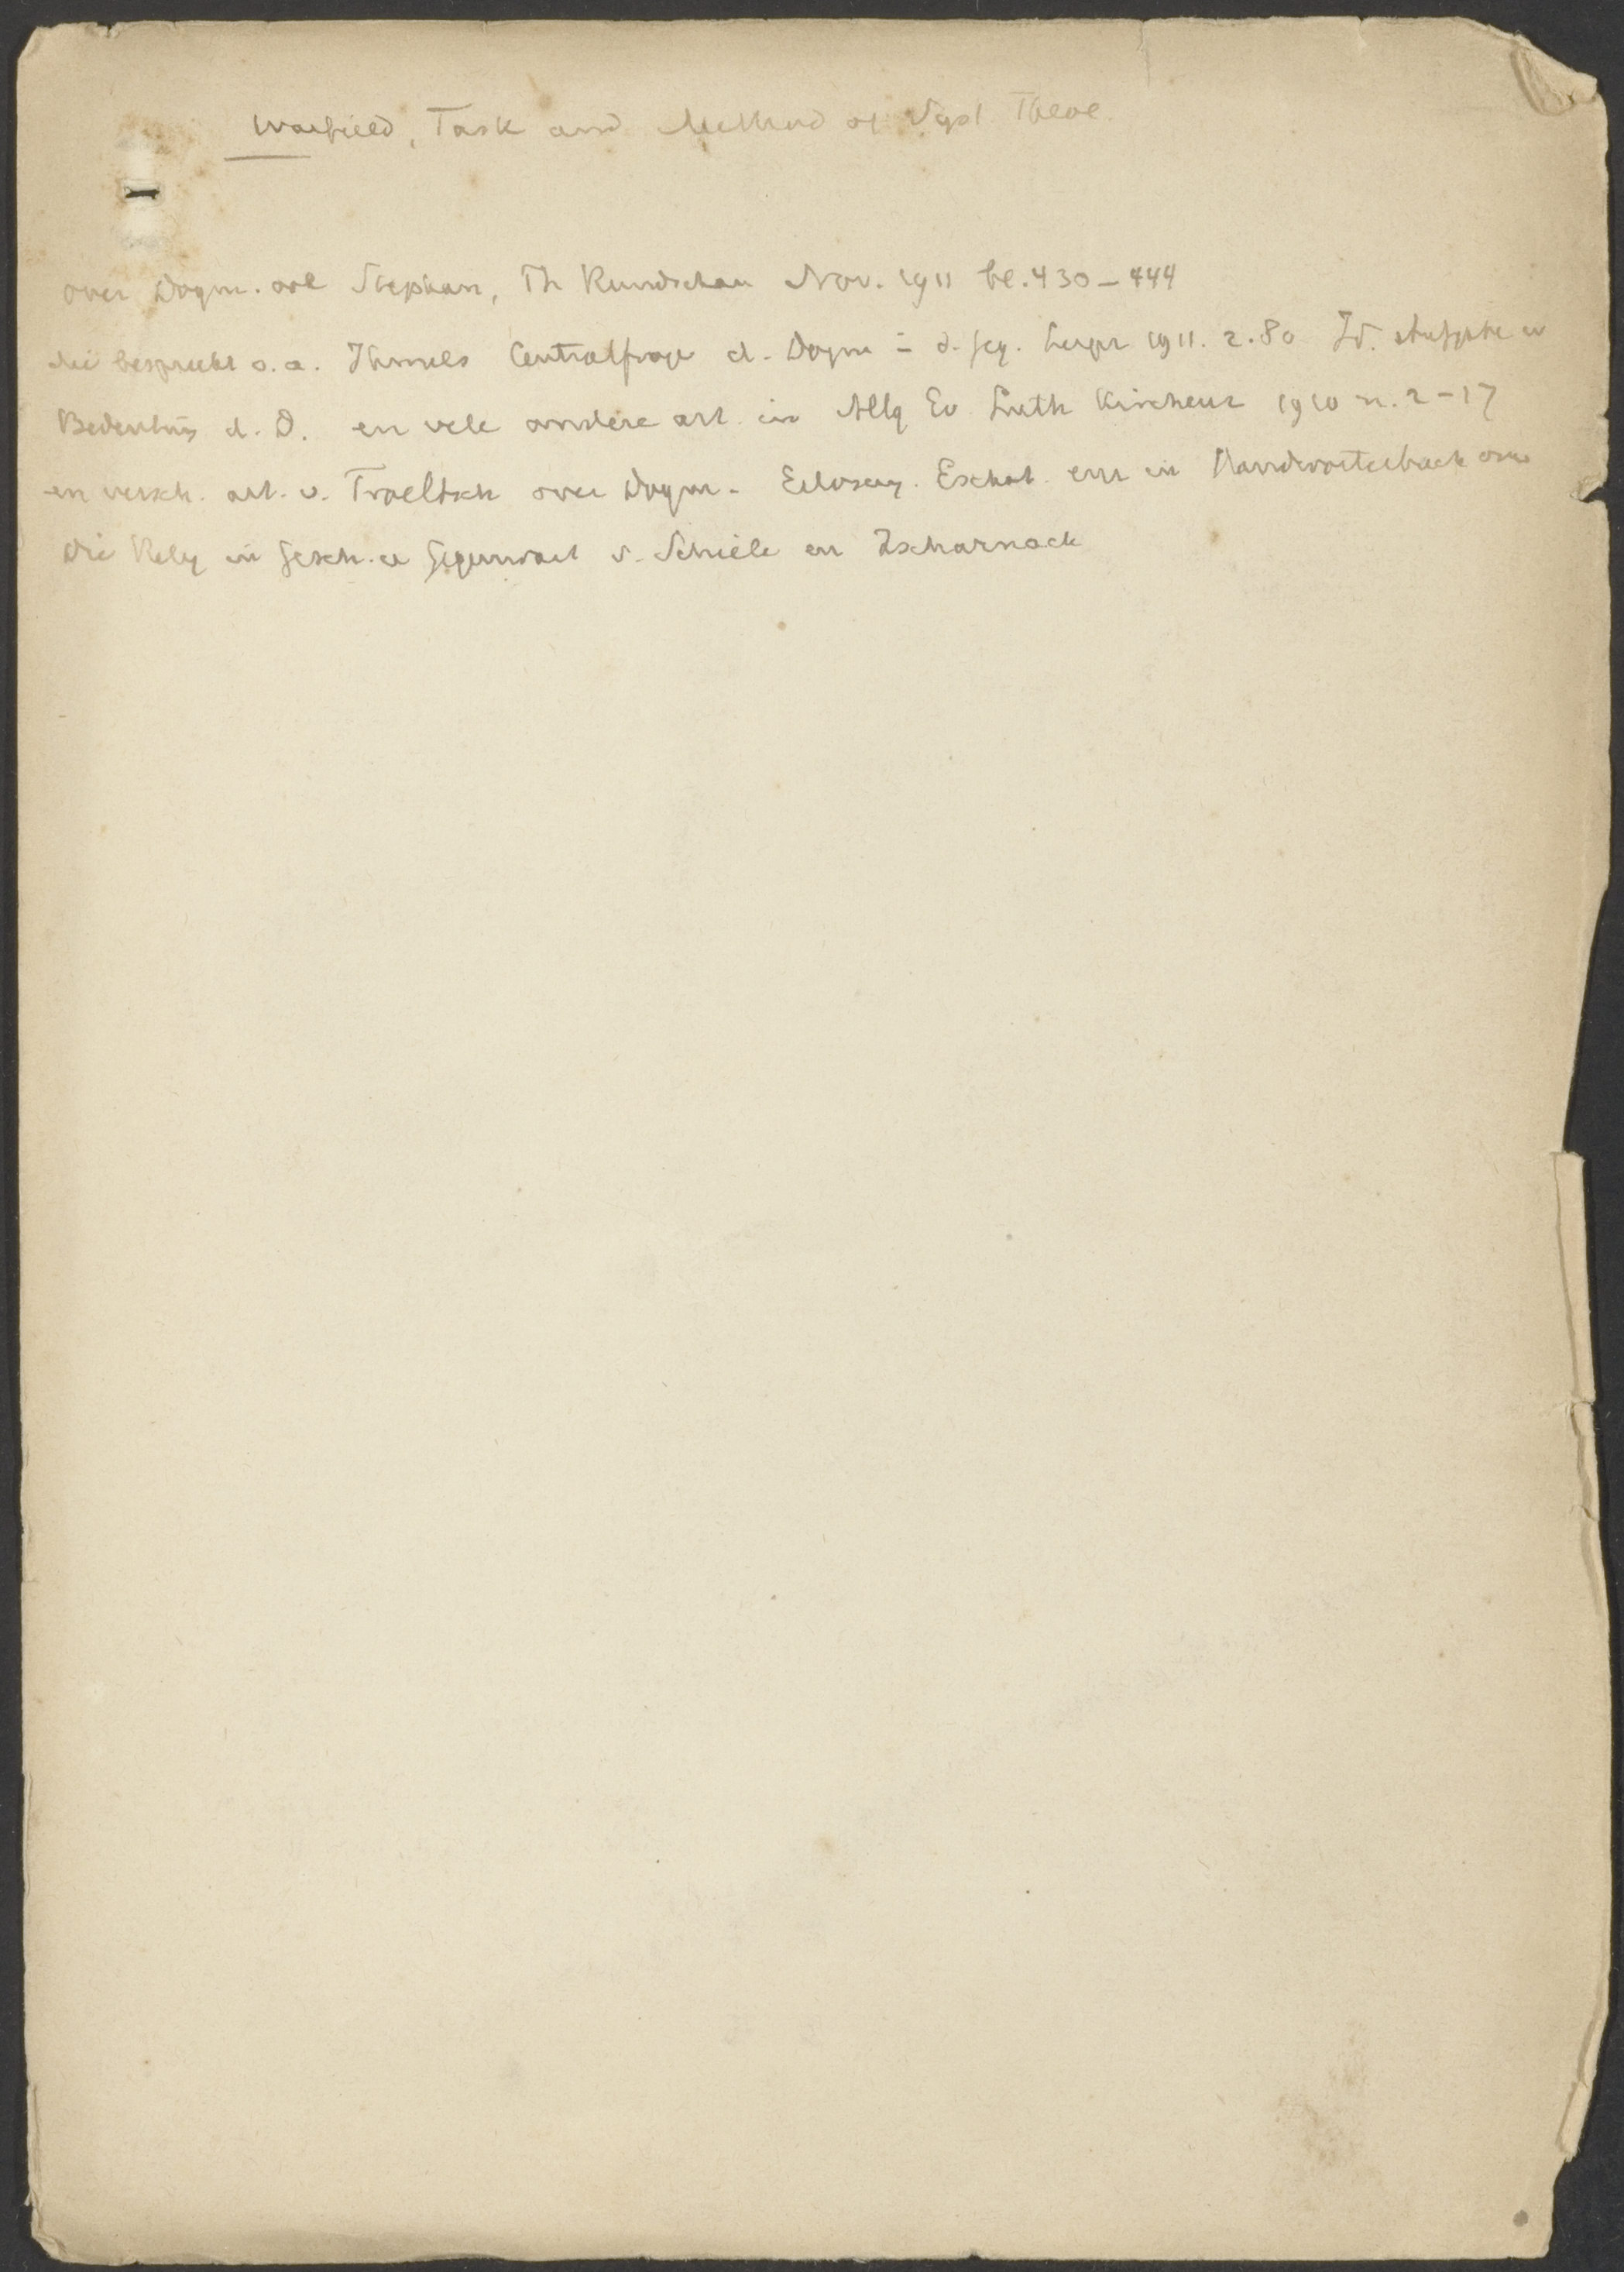 Warfield, Task and Method of Syst. Theol.
over Dogm. ook Stephan, Th Rundschau Nov. 1911 bl. 430-444
die bespreekt o.a. Ihmels Centralfrage d. Dogm in d. Geg. Leipz 1911. 2.80 Id. Aufgabe u
Bedeutung d. D. en vele andere art. in Allg Ev Luth Kirchenz 1910 n. 2-17
en versch. art. v. Troeltsch over Dogm. Erlosung. Eschat. enz in Handworterbuch
Die Relig in Gesch. u Gegenwart v. Schiele en Zscharnack